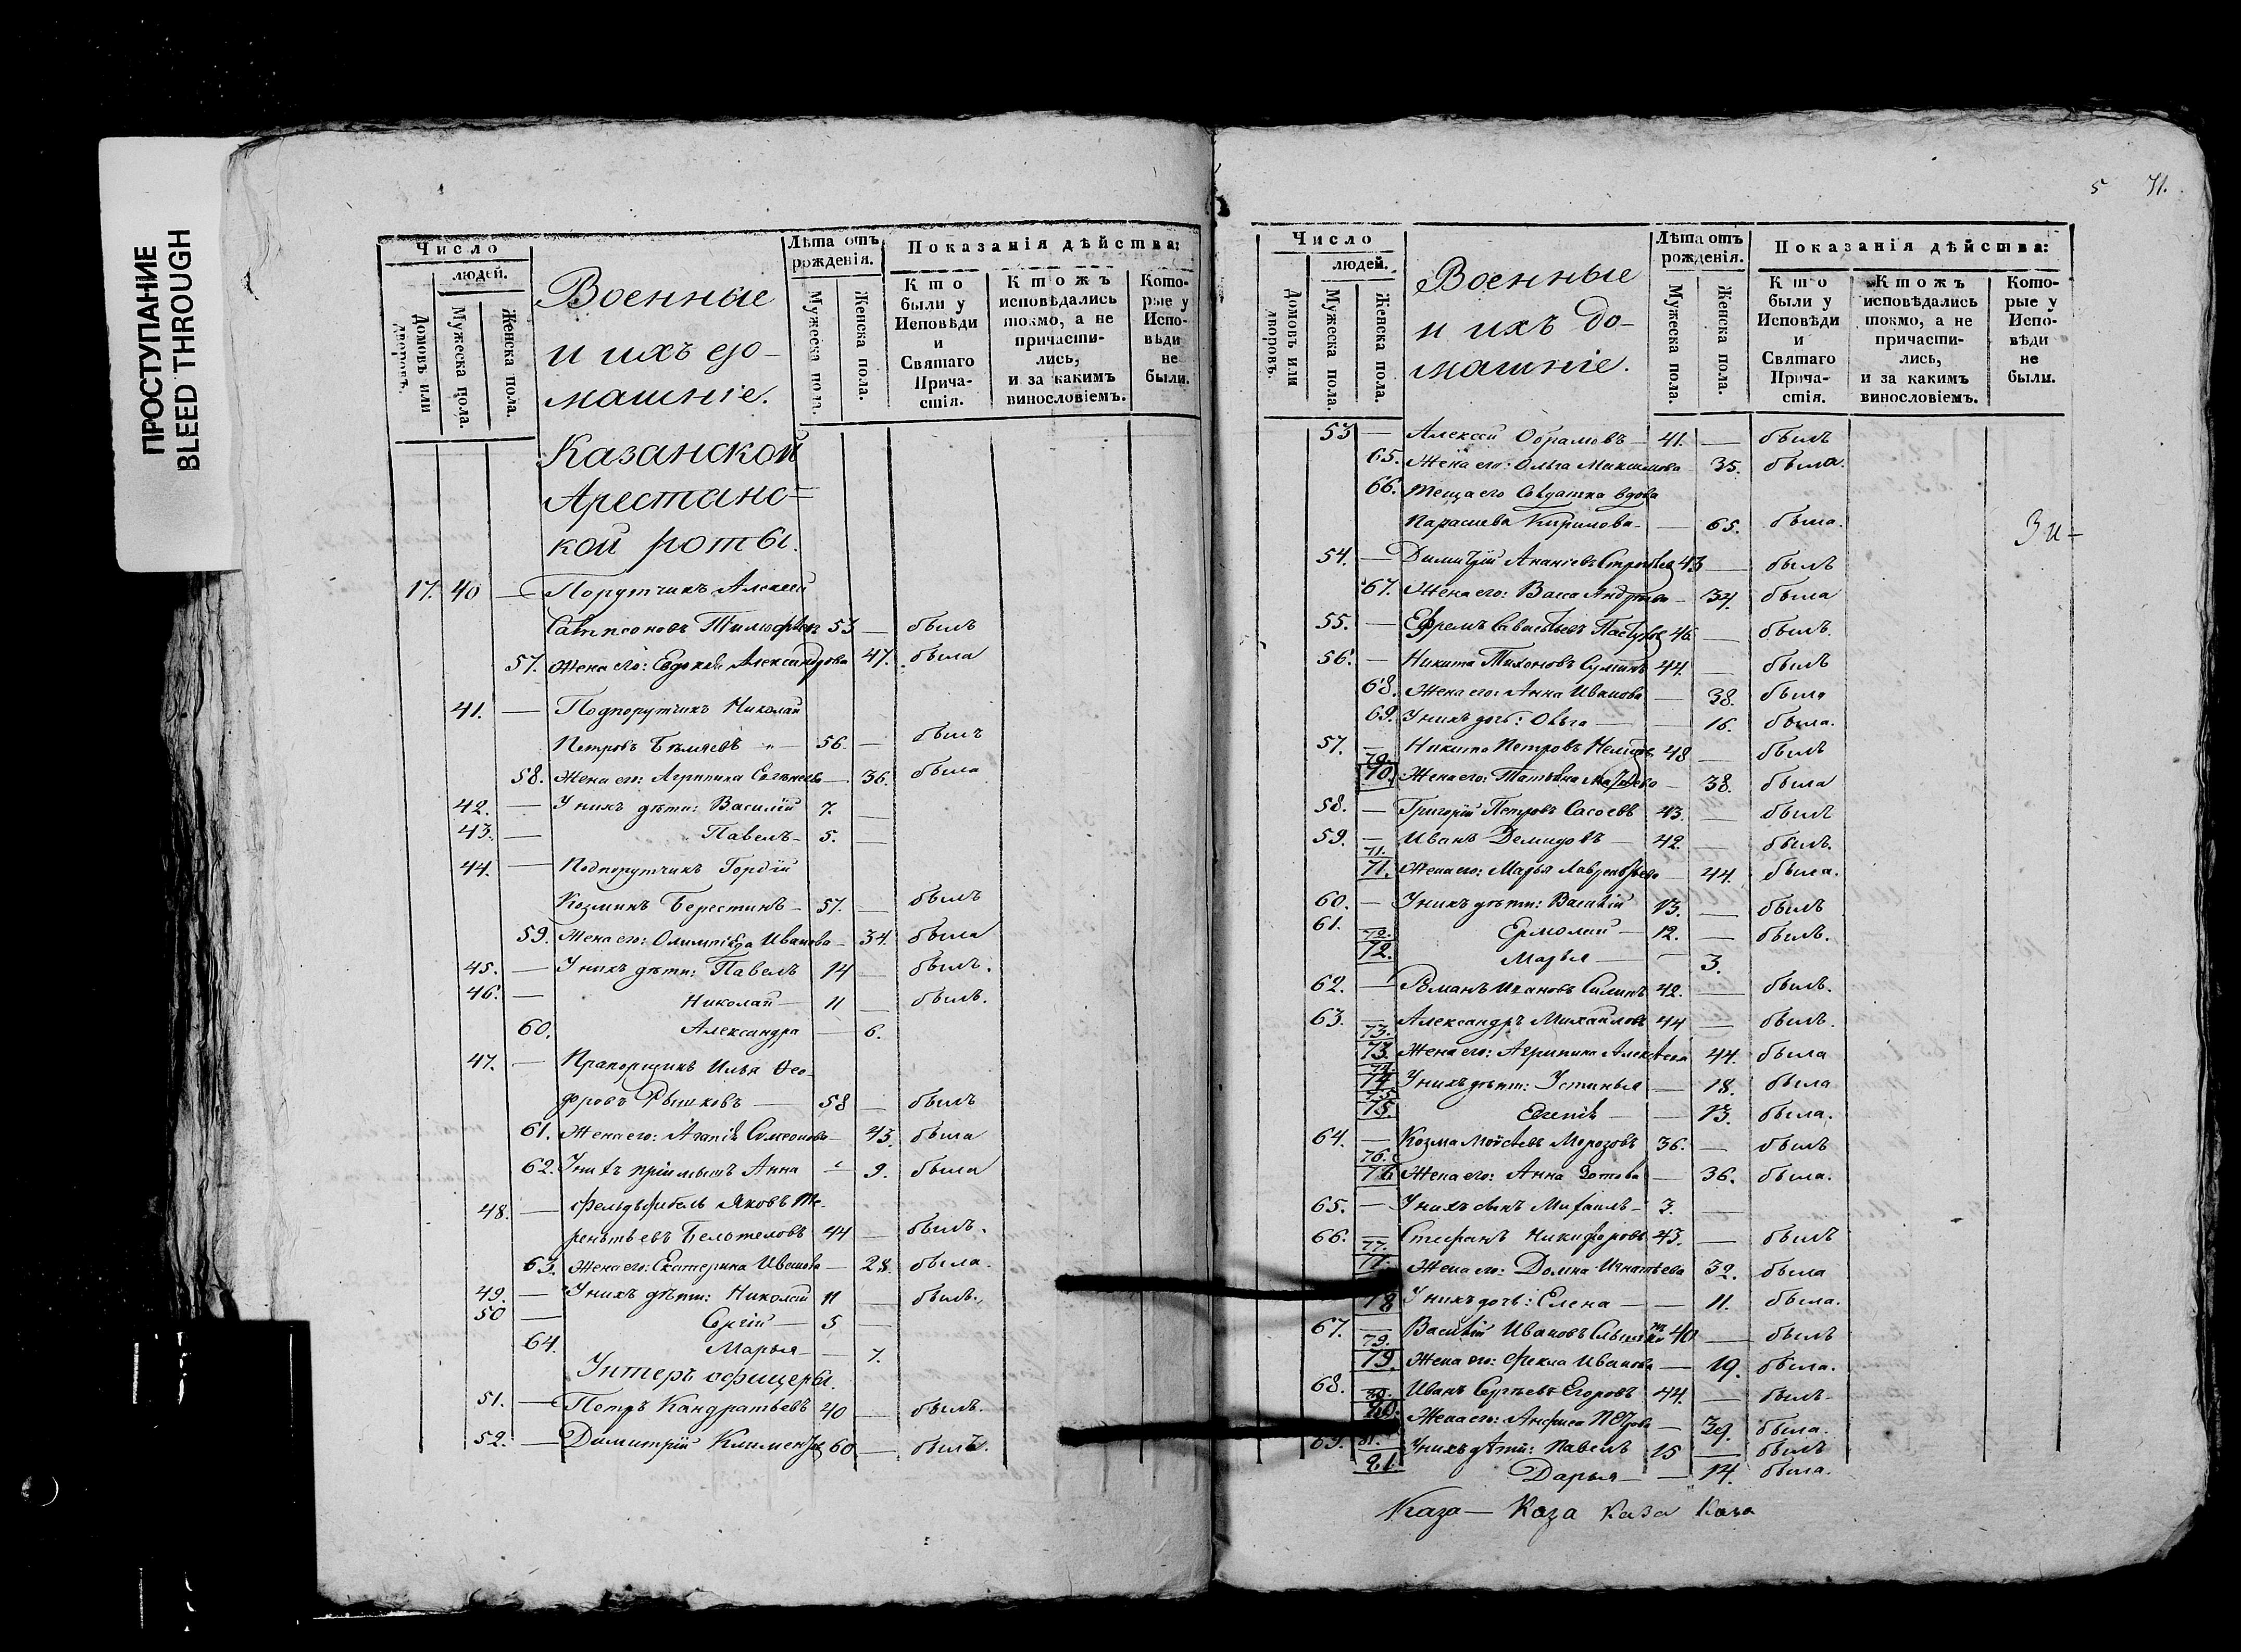 ПРОСТУПАНИЕ
BLEED THROUGH
Число
людей.
Домовъ или дворовъ.
Мужеска пола.
Женска пола.
Военные
и ихъ до-
машніе.
Лѣта отъ рожденія.
Мужеска пола.
Женска пола.
Показанія дѣйства:
Кто были у Исповѣди и Святаго Прича-стія.
Ктожъ исповѣдались токмо, а не причасти-лись, и за какимъ винословіемъ.
Кото-рые у Испо-вѣди не были.
Казанской
Арестанс=
кой роты.
17. 40 — Порутчикъ Алексей
Тимофѣевъ 53 — былъ
57. Жена его: Евдокея Александрова 47. была
41. — Подпорутчикъ Николай
Петровъ 56. — былъ
58. Жена его: Агрипина — 36. была
42. — У нихъ дѣти: Василій 7. —
43. — Павелъ 5. —
44. — Подпорутчикъ Гордѣй
Козминъ Берестинъ 57. — былъ
59. Жена его: Олимпіада Иванова — 34. была
45. — У нихъ дѣти: Павелъ 14 — былъ.
46. — Николай — 11 — былъ.
60. Александра — 6.
47. — Прапорщикъ Илья Ѳео-
доровъ Рышковъ — 58 — былъ
61. Жена его: Агапія Симеонова — 43. была
62. У нихъ пріимышъ Анна — 9. была
48. — Фельдфебель Яковъ Те-
рентьевъ Белотеловъ 44 — былъ.
63. Жена его: Екатерина Иванова — 28. была.
49. — У нихъ дѣти: Николай 11 — былъ.
50 — Сергій — 5 —
64. Марья — 7.
Унтеръ офицеры.
51. — Петръ Кандратьевъ 40 — былъ.
52. — Димитрій 60 — былъ.
5 71.
Число
людей.
Домовъ или дворовъ.
Мужеска пола.
Женска пола.
Военные
и ихъ до-
машніе.
Лѣта отъ рожденія.
Мужеска пола.
Женска пола.
Показанія дѣйства:
Кто были у Исповѣди и Святаго Прича-стія.
Ктожъ исповѣдались токмо, а не причасти-лись, и за какимъ винословіемъ.
Кото-рые у Испо-вѣди не были.
53 — Алексей Обрамовъ — 41. — былъ
65. Жена его: Ольга Максимова 35. была.
66. Теща его Солдатка вдова
Парасковья Кирилова — 65. была.
54. — Димитрій Ананіевъ 43 — былъ
67. Жена его: Васса Андреева — 34. была
55. — Ефремъ Савельевъ Пастуховъ 46. — былъ.
56. — Никита Тихоновъ Суминъ 44. — былъ
68. Жена его: Анна Иванова — 38. была
69. У нихъ дочь: Ольга — 16. была.
57. — Никита Петровъ 48 — былъ
70. Жена его: Татьяна — 38. была
58. — Григорій Петровъ Сасоевъ 43. — былъ
59. — Иванъ Демидовъ — 42. — былъ.
71.
71. Жена его: Марья Лаврентьева — 44. была.
60. — У нихъ дѣти: Василій 13. — былъ
61. Ермолай — 12. — былъ.
72.
72. Марья — 3.
62. — Романъ Ивановъ Силинъ 42. — былъ.
63. — Александръ Михайловъ 44 — былъ.
73.
73. Жена его: Агрипина Алексѣева 44. была
74 У нихъ дѣти: Устинья — 18. была
75. — 13. была.
64. — Козма Моисѣевъ Морозовъ 36. — былъ
76.
76 Жена его: Анна Зотова — 36. была.
65. — У нихъ сынъ Михаилъ 3. —
66. — Стефанъ Никифоровъ 43. — былъ
77.
77. Жена его: Домна Игнатьева 32. была
78 У нихъ дочь: Елена — 11. была.
67. — Василій Ивановъ 40 — былъ
79.
79. Жена его: Фекла Иванова — 19. была.
68. Иванъ Сергѣевъ Егоровъ 44. — былъ
80. Жена его: Анфиса Петрова — 39. была.
69. У нихъ дѣти: Павелъ 15 — былъ
81. Дарья — 14. была.
Каза — Каза Каза Каза